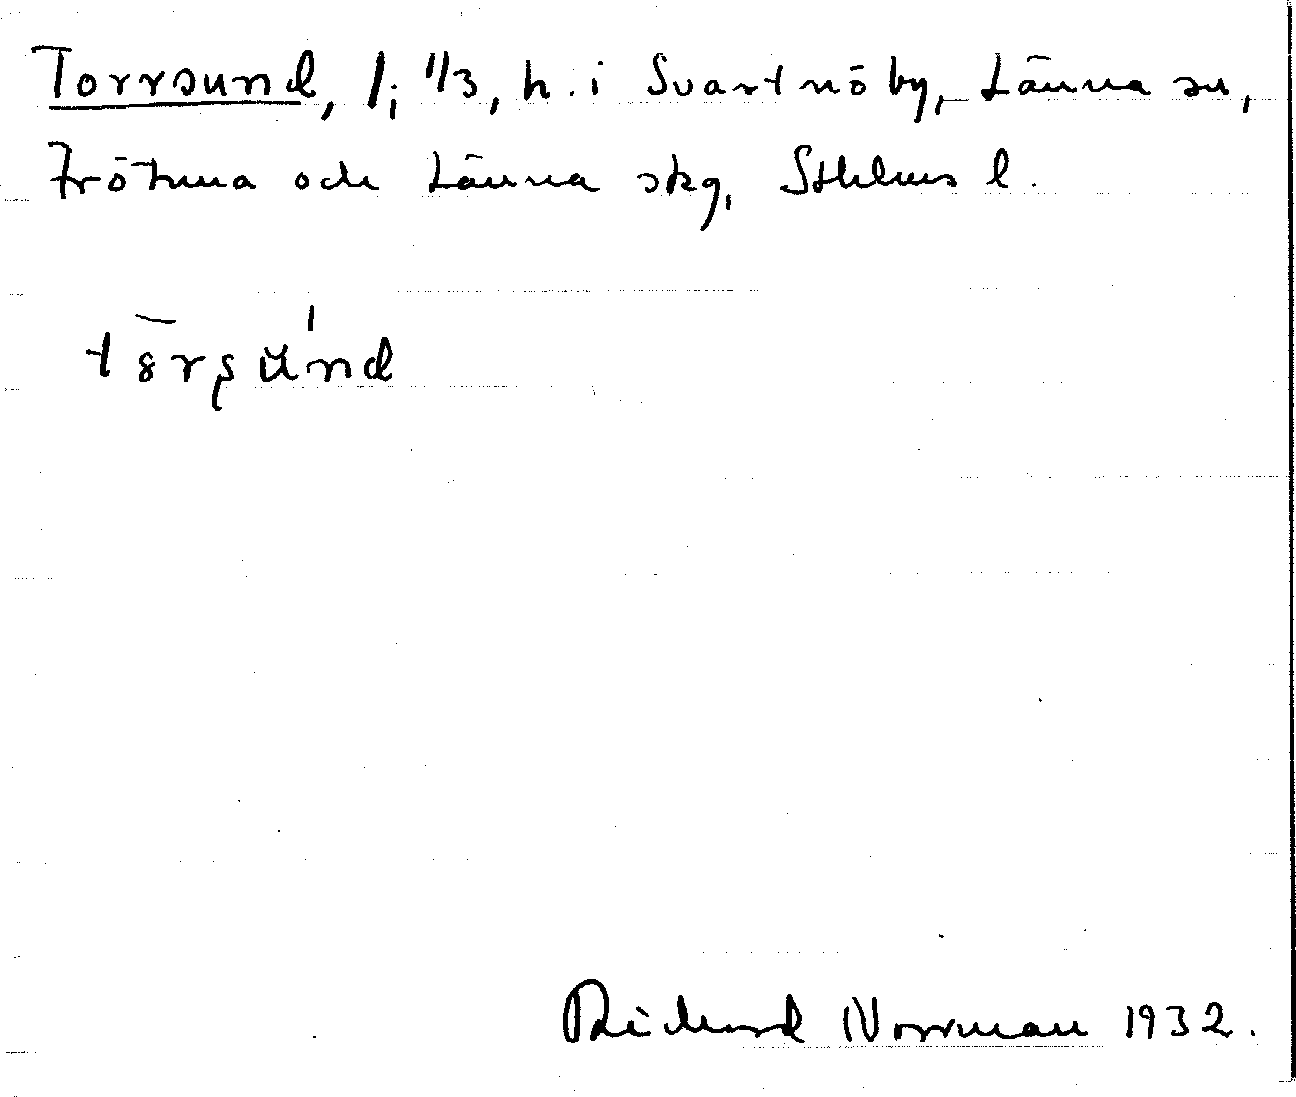 Torrsund, 1; 1/3, h. i Svartnö by, Länna sn,
Frötuna och Länna skg, Sthlms l.
Rickard Norrman 1932.